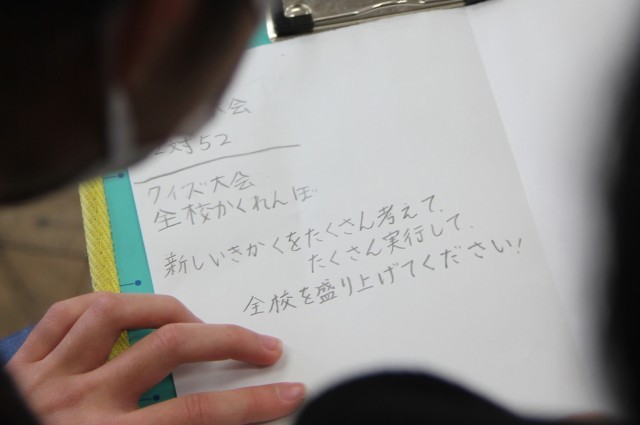 大会
対52
クイズ大会
全校かくれんぼ
新しいきかくをたくさん考えて、
たくさん実行して、
全校を盛り上げてください!